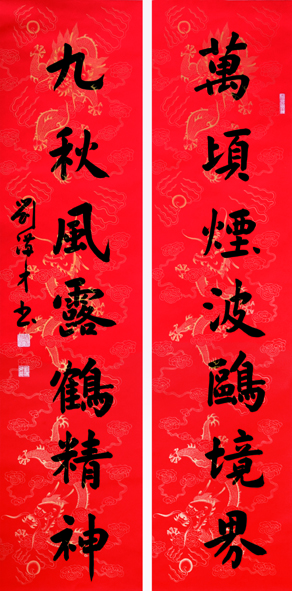 萬頃煙波鷗境界
九秋風露鶴精神